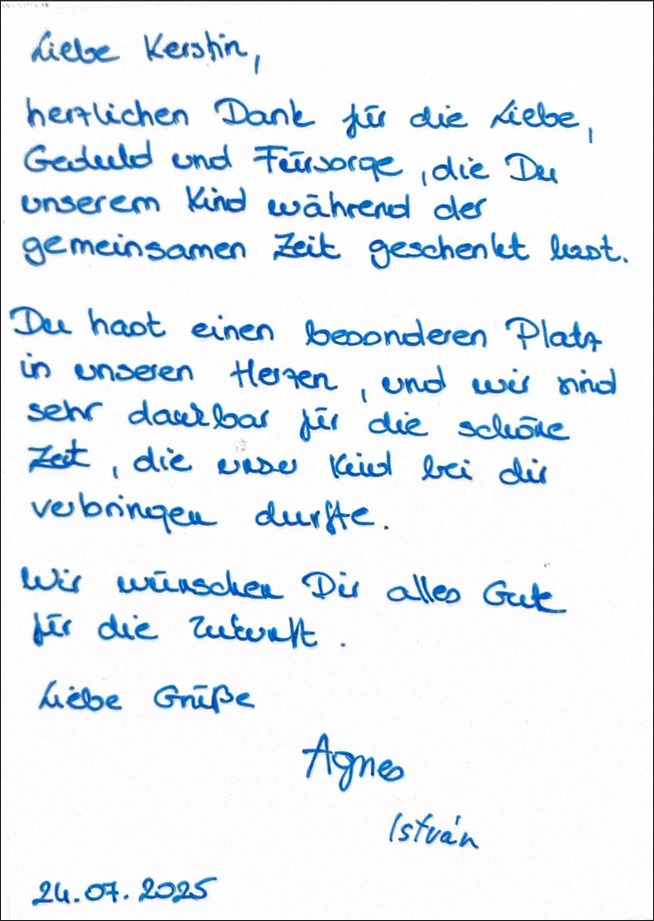 Liebe Kerstin,
herzlichen Dank für die Liebe,
Geduld und Fürsorge, die Du
unserem Kind während der
gemeinsamen Zeit geschenkt hast.
Du hast einen besonderen Platz
in unseren Herzen, und wir sind
sehr dankbar für die schöne
Zeit, die unser Kind bei dir
verbringen durfte.
Wir wünschen Dir alles Gute
für die Zukunft.
Liebe Grüße
Agnes
István
24.07.2025